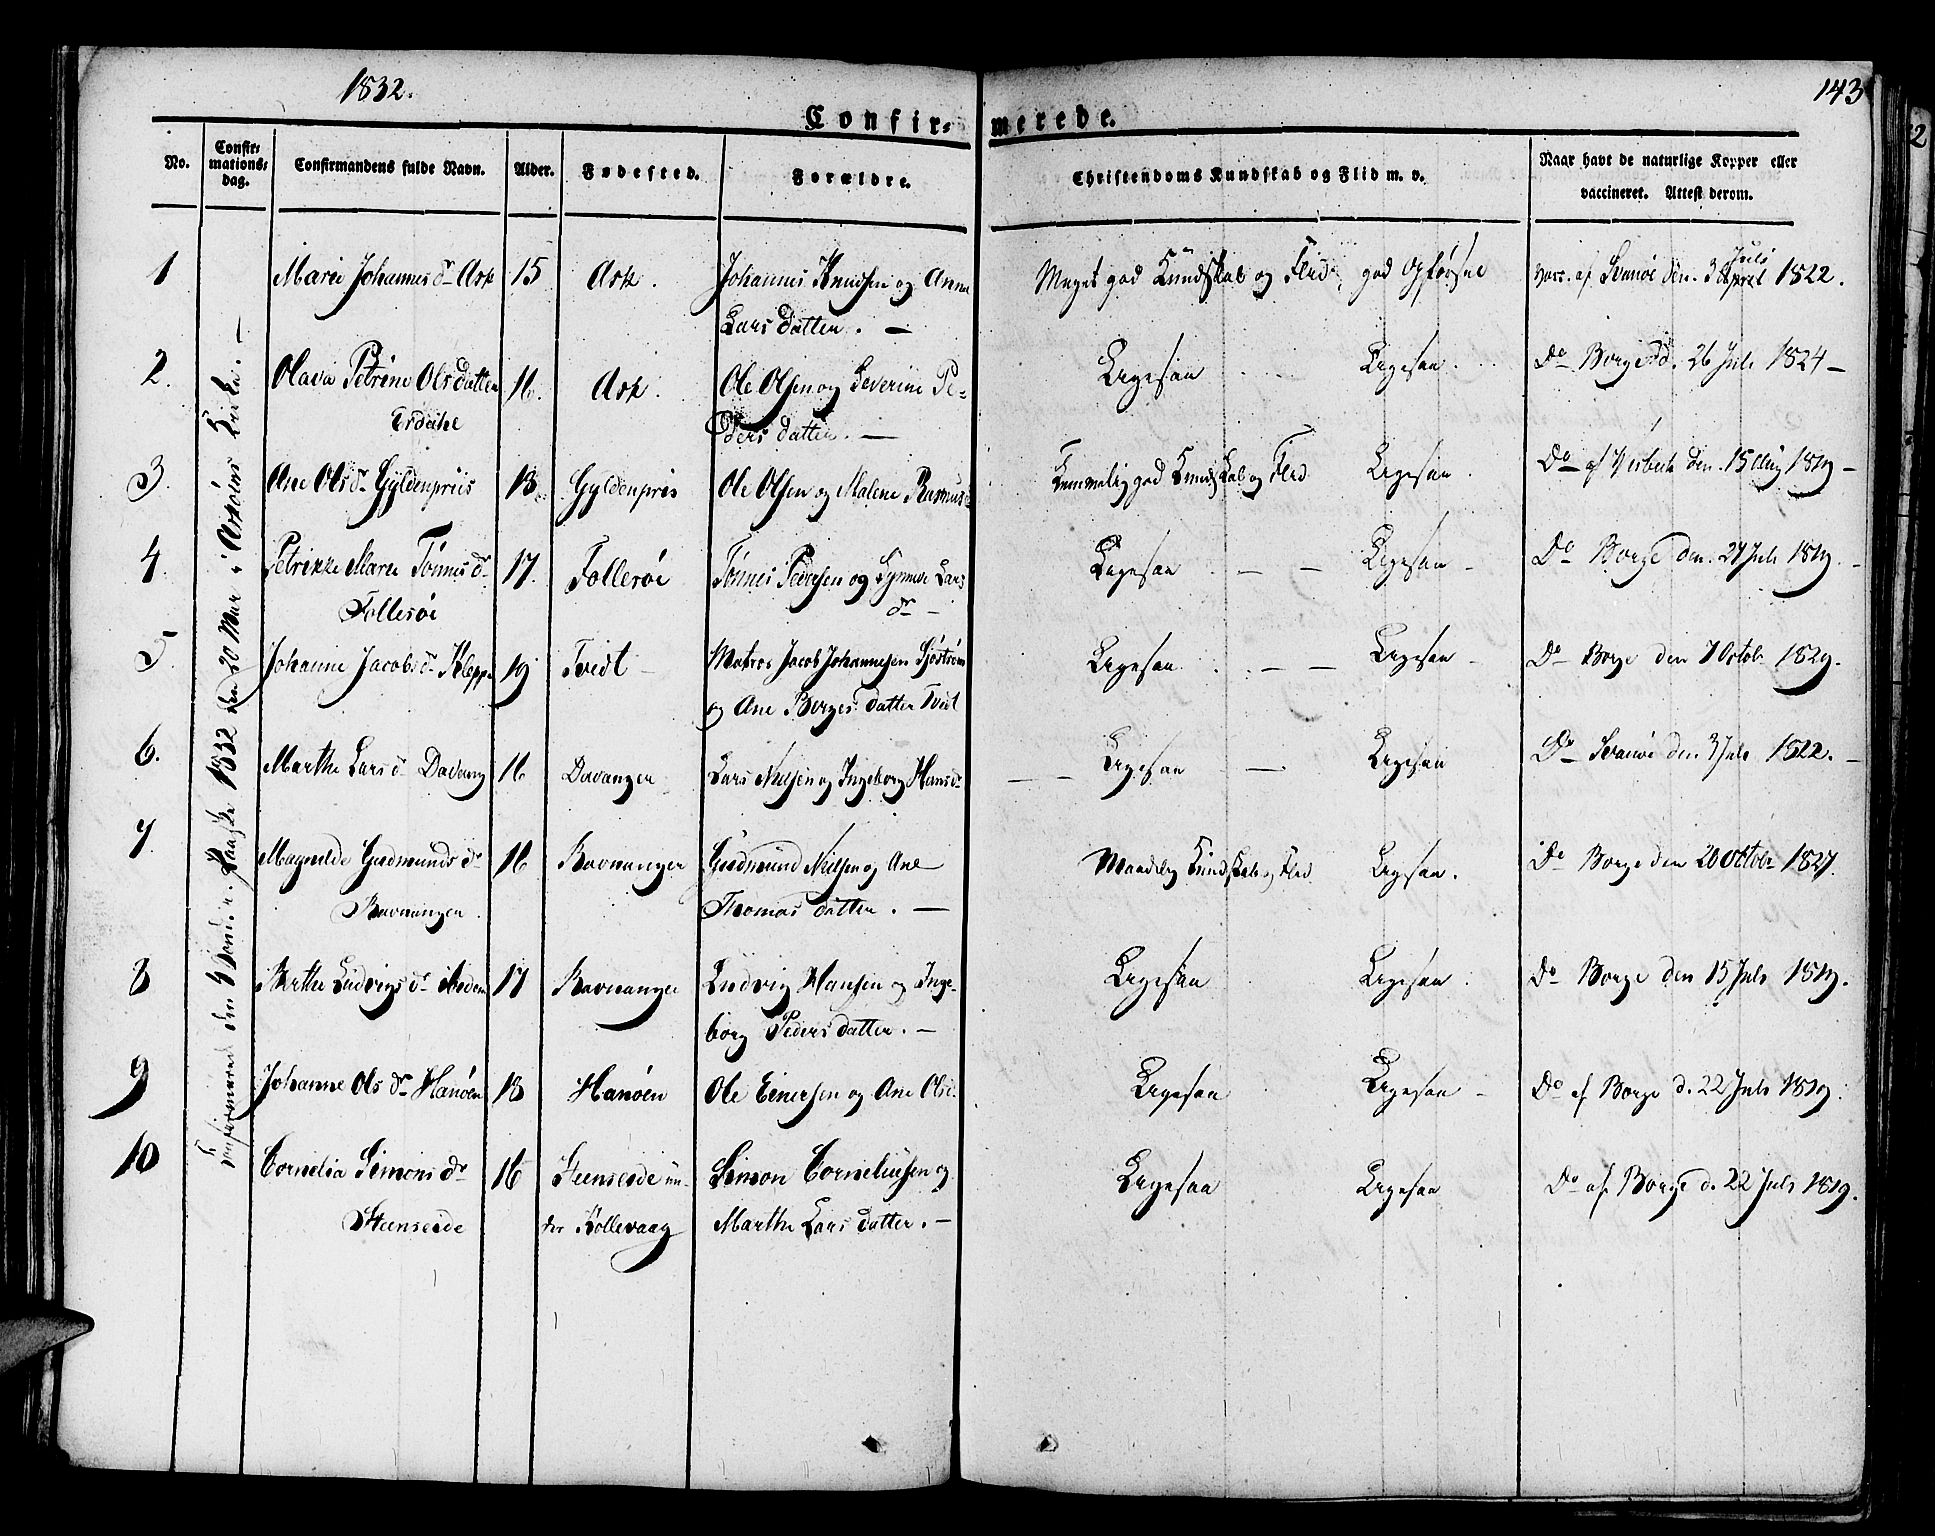 1832.
143
Confir- merede.
No.
Confir-
mations-
dag.
Confirmandens fulde Navn.
Alder.
Fødested.
Forældre.
Christendoms Kundskab og Flid m. v.
Naar havt de naturlige Kopper eller
vaccineret. Attest derom.
Confirmerede den 4 Domin. Paaske 1832 den 20 Mai i Askøens Kirke. —
1 Marie Johannes dr Ask 15 Ask. Johannes Knudsen og Anna Meget god Kundskab og Flid, god Opførsel vacc. af Svanøe den. 3 April Juli 1822.
Lars datter. —
2. Olava Petrine Olsdatter 16. Ask. Ole Olsen og Severine Pe- Ligesaa Ligesaa. Do Borge d. 26 Juli 1824 —
Erdahl ders datter. —
3. Ane Ols dr Gyldenpriis 18. Gyldenpris Ole Olsen og Malene Rasmus Temmelig god Kundskab og Flid Ligesaa. Do af Wesbech den. 15 Aug 1819 —
4 Petrikke Marie Tönnes dr 17. Follesøe Tönnes Pedersen og Synneve Lars Ligesaa — — Ligesaa — Do Borge den. 27 Juli 1819. —
Follesøe dr —
5 Johanne Jacobs dr Kleppe 19 Tvedt — Matros Jacob Johannesen Sjöström Ligesaa . — — Ligesaa — Do Borge den 7 Octob. 1829.
og Ane Borges datter Tvedt
6. Marthe Lars dr Davang 16 Davanger Lars Nilsen og Ingeborg Hans dr — — Ligesaa — Ligesaa Do Svanøe den 3 Juli 1822. —
7. Magnilde Gudmunds dr 16 Ravnanger Gudmund Nielsen og Ane Maadelig Kundskab og Flid Ligesaa. Do Borge den 20 Octobr 1827.
Ravnanger. Thomas datter. —
8 Berthe Ludvigs dr Meden 17 Ravnanger Ludvig Hansen og Inge- Ligesaa Ligesaa. Do Borge den 15 Juli 1819.
borg Peders datter. —
9 Johanne Ols dr Hanøen 18 Hanøen Ole Einersen og Ane Olsd. Ligesaa Ligesaa — Do af Borge d. 22 Juli 1819.
10 Cornelia Simons dr 16 Steenseide un- Simon Corneliusen og Ligesaa Ligesaa Do af Borge d. 22 Juli 1819.
Steenseide der Kollevaag Marthe Lars datter. —
2